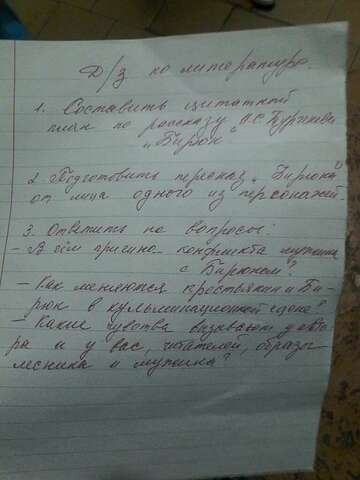 Д/з по литературе.
1. Составить цитатный
план по рассказу И.С Тургенева
„Бирюк"
2. Подготовить пересказ „Бирюка"
от лица одного из персонажей.
3. Ответить на вопросы:
- В чём причина конфликта мужика
с Бирюком?
- Как меняются крестьянин и Би-
рюк в кульминационной сцене?
- Какие чувства вызывают у авто-
ра и у вас, читателей, образы
лесника и мужика?